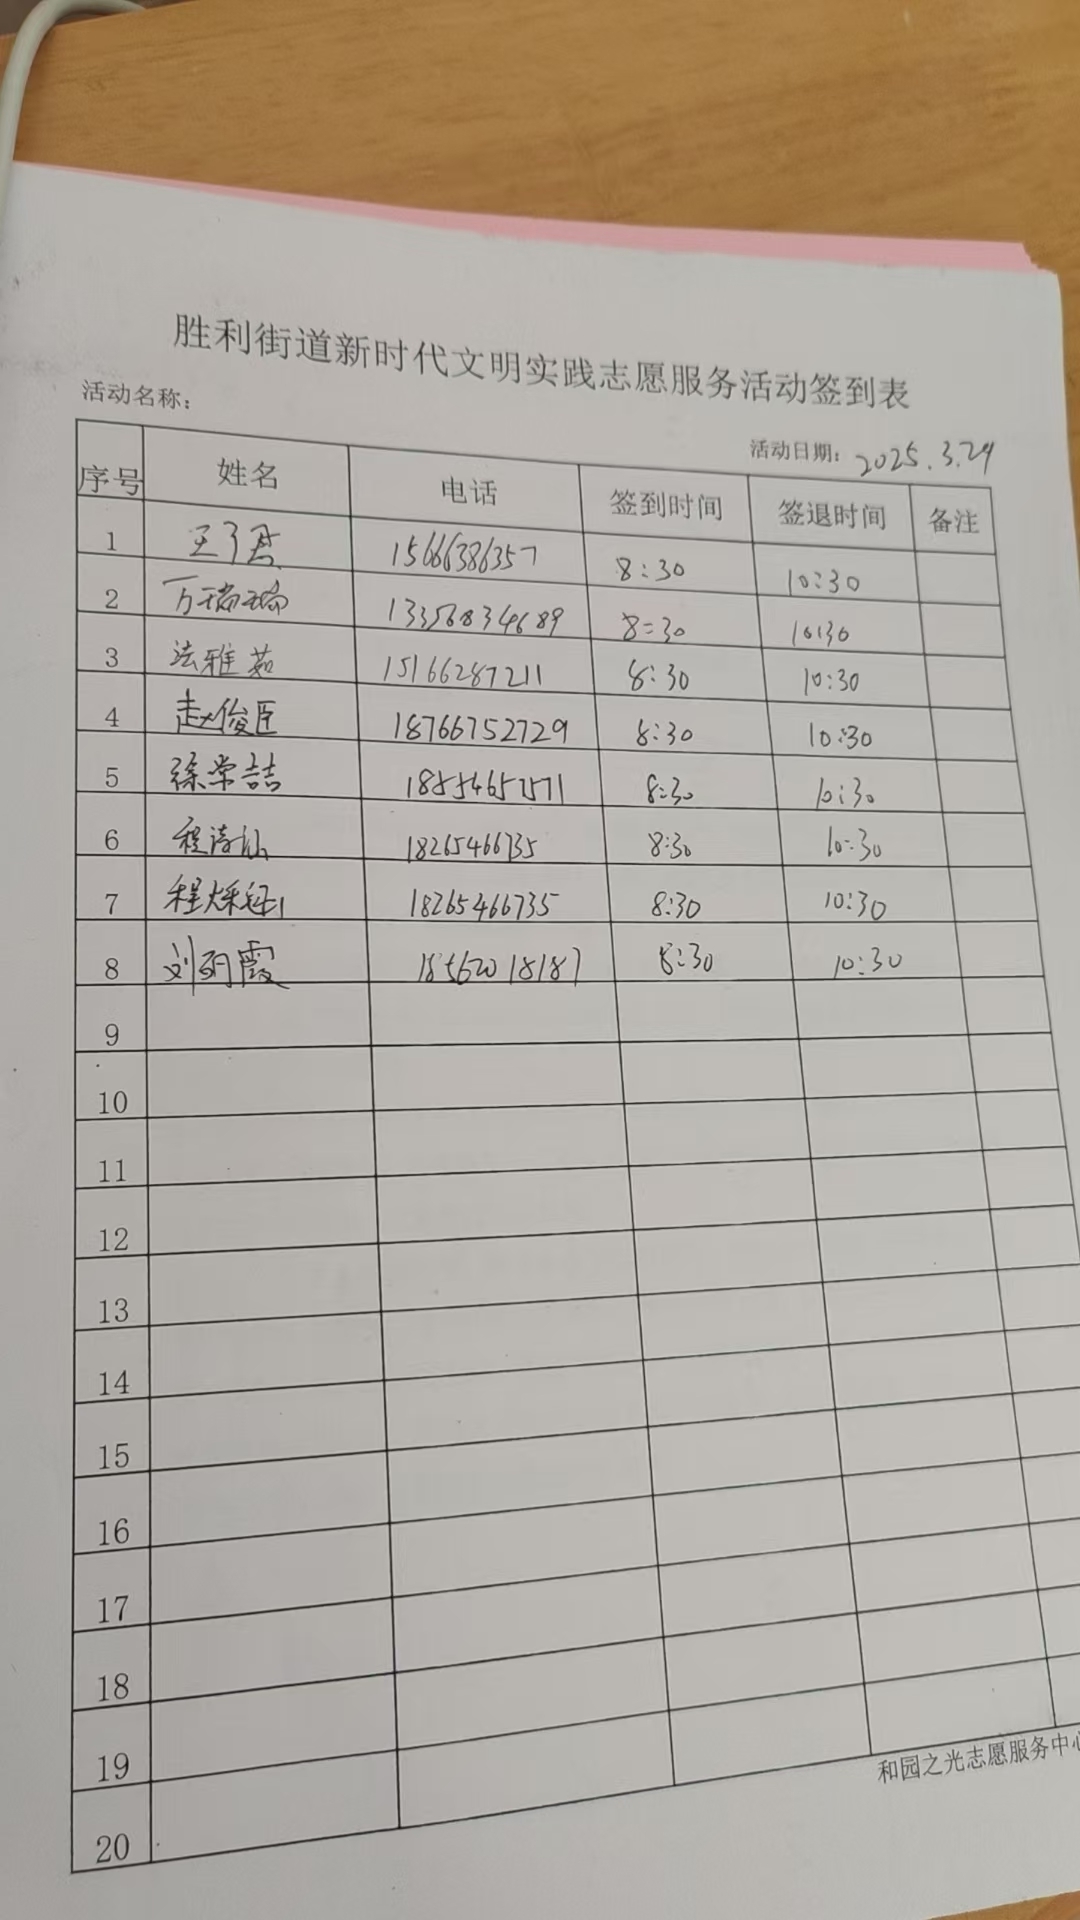 胜利街道新时代文明实践志愿服务活动签到表
活动名称：
活动日期：2025.3.29
序号 姓名 电话 签到时间 签退时间 备注
1 王子君 15666386357 8:30 10:30
2 万瑞瑞 13356834689 8:30 10:30
3 法雅茹 15166287211 8:30 10:30
4 赵俊臣 18766752729 8:30 10:30
5 徐常喆 8:30 10:30
6 程诗 18265466735 8:30 10:30
7 程 18265466735 8:30 10:30
8 刘明霞 18562018187 8:30 10:30
9
10
11
12
13
14
15
16
17
18
19
20
和园之光志愿服务中心